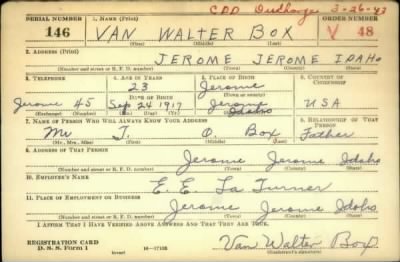 CPD Discharge 2-26-43
SERIAL NUMBER 1. NAME (Print) ORDER NUMBER
146 VAN WALTER BOX V 48
(First) (Middle) (Last)
2. ADDRESS (Print)
JEROME JEROME IDAHO
(Number and street or R. F. D. number) (Town) (County) (State)
3. TELEPHONE 4. AGE IN YEARS 5. PLACE OF BIRTH 6. COUNTRY OF CITIZENSHIP
23 Jerome
DATE OF BIRTH (Town or county)
Jerome 45 Sep 24 1917 Jerome Idaho USA
(Exchange) (Number) (Mo.) (Day) (Yr.) (State or country)
7. NAME OF PERSON WHO WILL ALWAYS KNOW YOUR ADDRESS 8. RELATIONSHIP OF THAT PERSON
Mr J. O. Box Father
(Mr., Mrs., Miss) (First) (Middle) (Last)
9. ADDRESS OF THAT PERSON
Jerome Jerome Idaho
(Number and street or R. F. D. number) (Town) (County) (State)
10. EMPLOYER'S NAME
E. E. La Turner
11. PLACE OF EMPLOYMENT OR BUSINESS
Jerome Jerome Idaho
(Number and street or R. F. D. number) (Town) (County) (State)
I AFFIRM THAT I HAVE VERIFIED ABOVE ANSWERS AND THAT THEY ARE TRUE.
REGISTRATION CARD
D. S. S. Form 1 (over) 16-17105 Van Walter Box
(Registrant's signature)